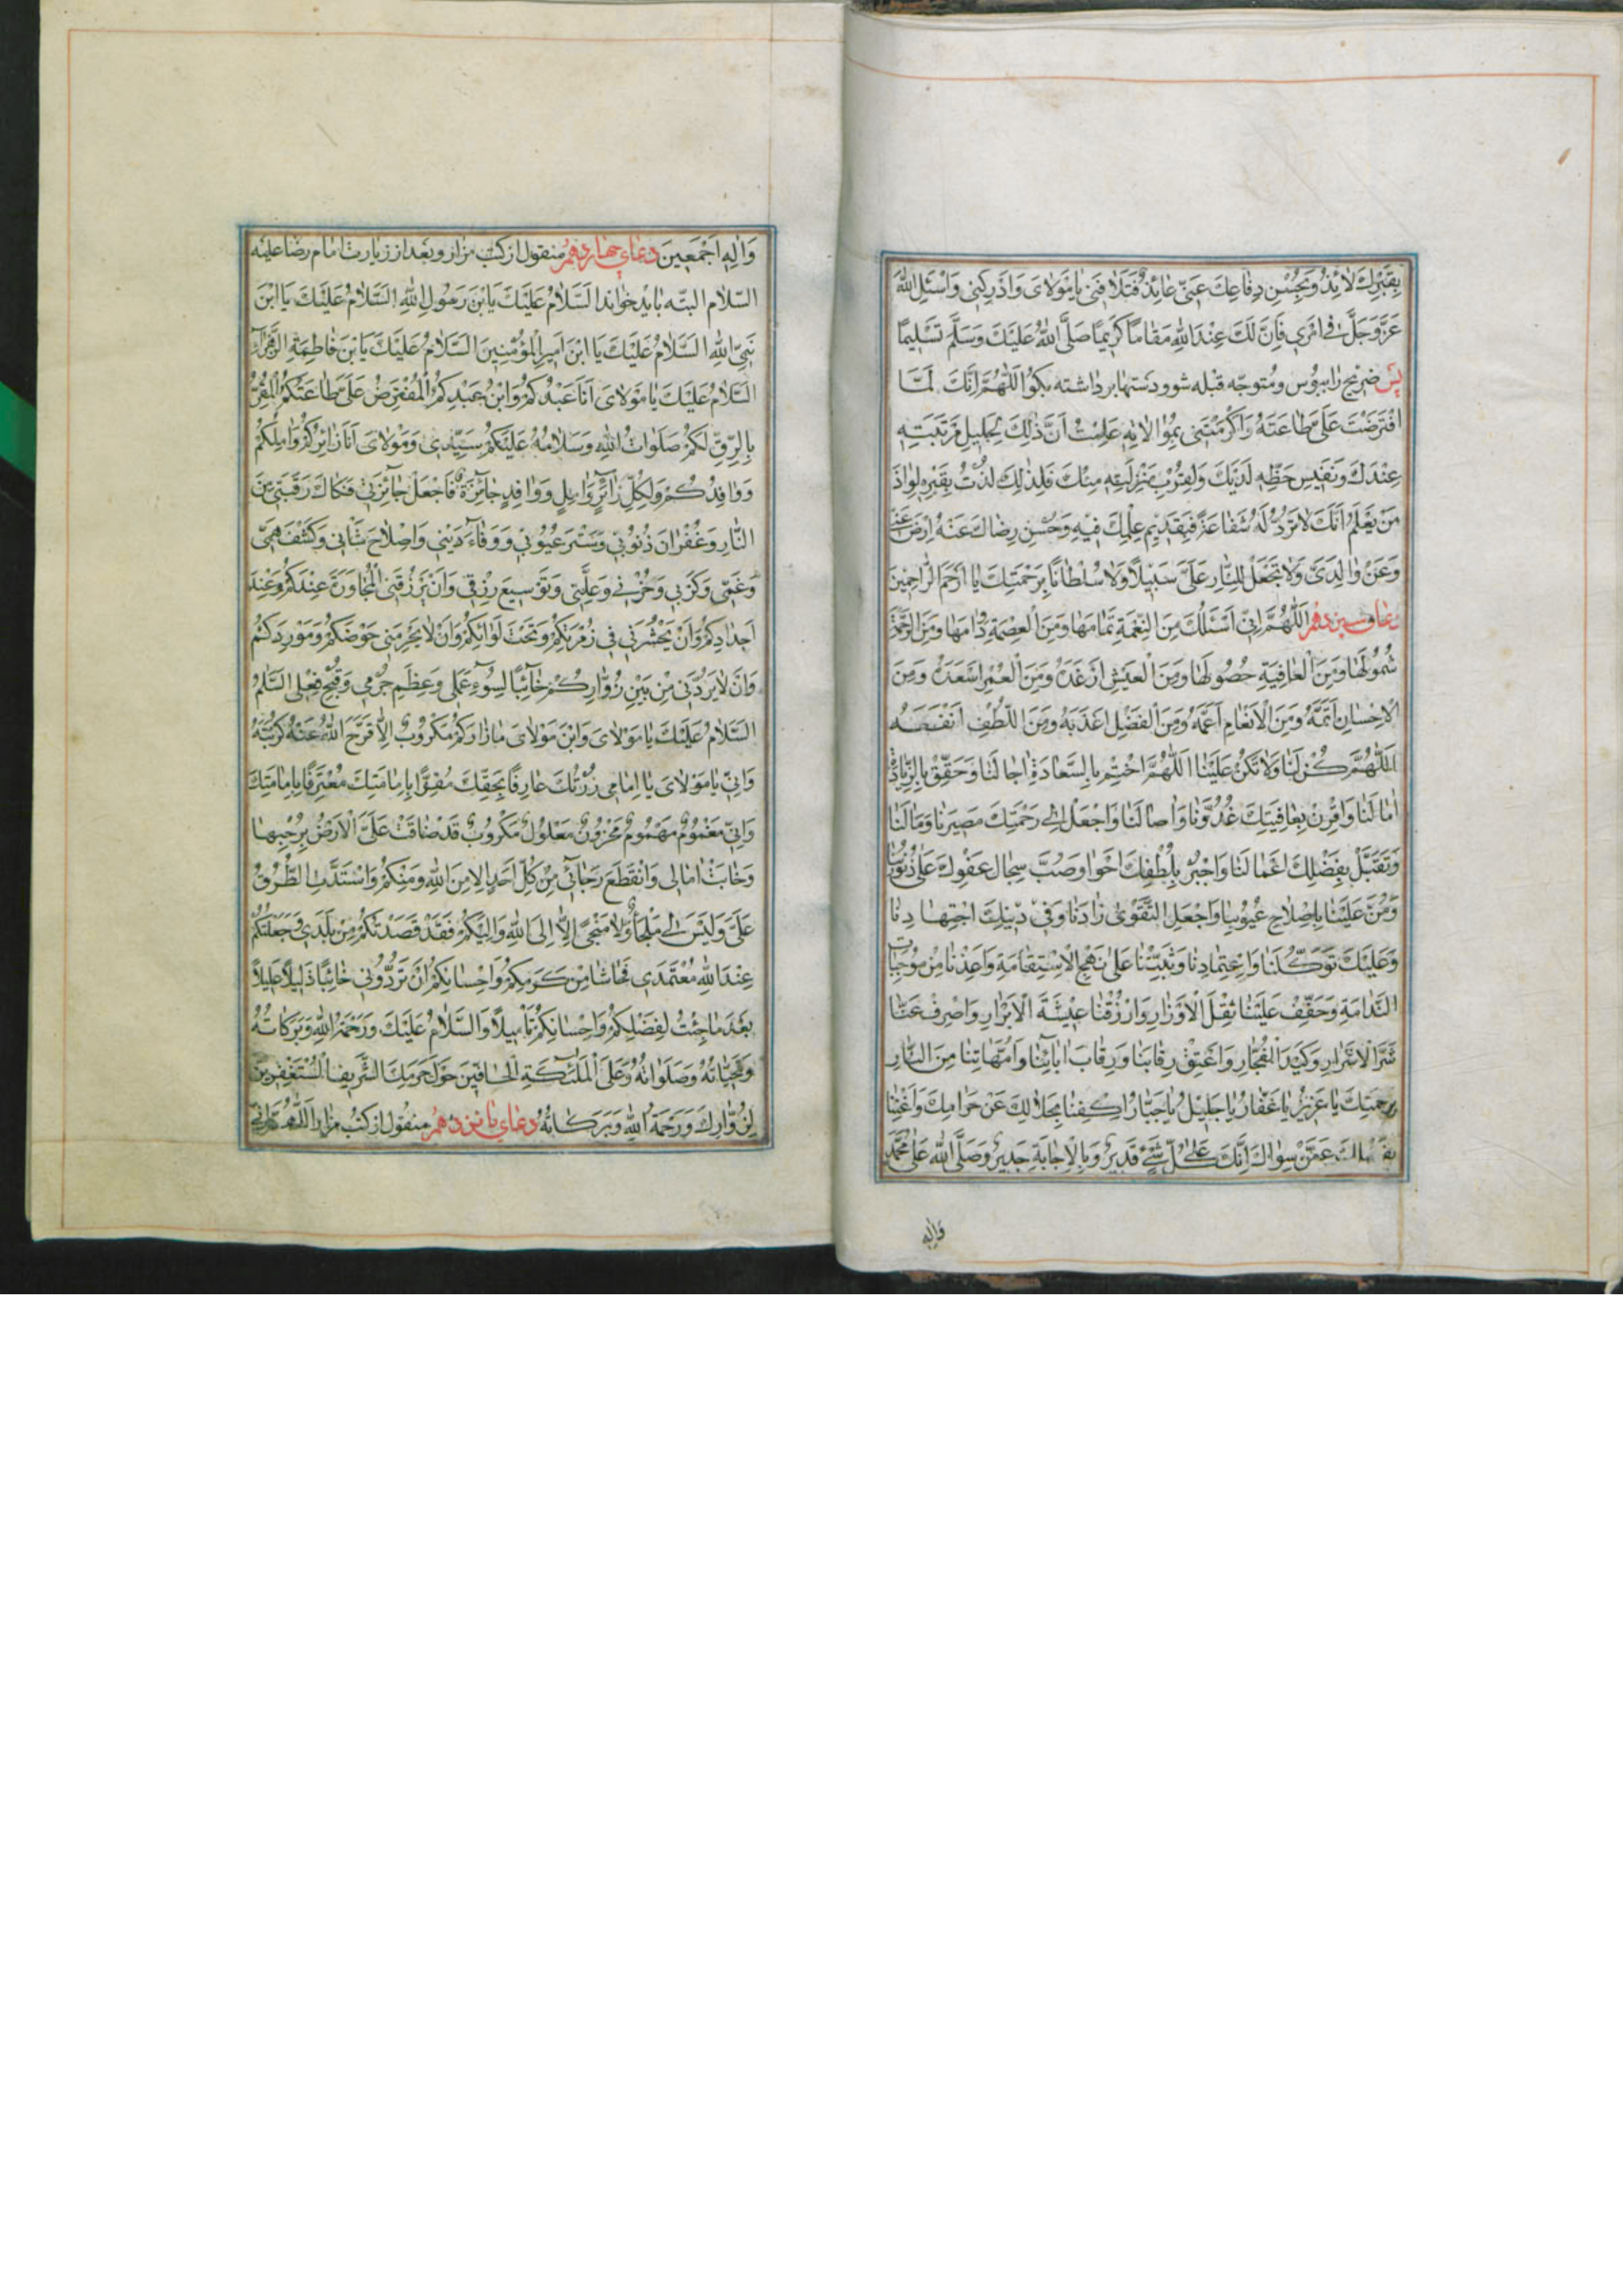 بِقَبْرِكَ لائِذٌ وَبِحُسْنِ دِفاعِكَ عَنّى عائِذٌ فَتَلافَنى يا مَوْلاىَ وَاَدْرِكْنى وَاسْئَلِ اللهَ
عَزَّ وَجَلَّ فى اَمْرى فَاِنَّ لَكَ عِنْدَ اللهِ مَقاماً كَريماً صَلَّى اللهُ عَلَيْكَ وَسَلَّمَ تَسْليماً
پس ضريح را ببوس و متوجّه قبله شو و دستها برداشته بكو اَللّهُمَّ اِنَّكَ لَمَّا
افْتَرَضْتَ عَلَىَّ طاعَتَهُ وَاَكْرَمْتَنى بِمُوالاتِهِ عَلِمْتُ اَنَّ ذلِكَ لِجَليلِ مَرْتَبَتِهِ
عِنْدَكَ وَنَفيسِ حَظِّهِ لَدَيْكَ وَلِقُرْبِ مَنْزِلَتِهِ مِنْكَ فَلِذلِكَ لُذْتُ بِقَبْرِهِ لِواذَ
مَنْ يَعْلَمُ اَنَّكَ لا تَرُدُّ لَهُ شَفاعَةً فَبِقَديمِ عِلْمِكَ فيهِ وَحُسْنِ رِضاكَ عَنْهُ اِرْضَ عَنّى
وَعَنْ والِدَىَّ وَلا تَجْعَلْ لِلنّارِ عَلَىَّ سَبيلاً وَلا سُلْطاناً بِرَحْمَتِكَ يا اَرْحَمَ الرّاحِمينَ
دعاى سيزدهم اَللّهُمَّ اِنّى اَسْئَلُكَ مِنَ النِّعْمَةِ تَمامَها وَمِنَ الْعِصْمَةِ دَوامَها وَمِنَ الرَّحْمَةِ
شُمُولَها وَمِنَ الْعافِيَةِ حُصُولَها وَمِنَ الْعَيْشِ اَرْغَدَهُ وَمِنَ الْعُمْرِ اَسْعَدَهُ وَمِنَ
الاِحْسانِ اَتَمَّهُ وَمِنَ الاِنْعامِ اَعَمَّهُ وَمِنَ الْفَضْلِ اَعْذَبَهُ وَمِنَ اللُّطْفِ اَنْفَعَهُ
اَللّهُمَّ كُنْ لَنا وَلا تَكُنْ عَلَيْنا اَللّهُمَّ اخْتِمْ بِالسَّعادَةِ اجالَنا وَحَقِّقْ بِالزِّيادَةِ
امالَنا وَاقْرِنْ بِعافِيَتِكَ غُدُوَّنا وَاصالَنا وَاجْعَلْ اِلى رَحْمَتِكَ مَصيرَنا وَمَالَنا
وَتَقَبَّلْ بِفَضْلِكَ اَعْمالَنا وَاجْبُرْ بِلُطْفِكَ اَحْوا وَصُبَّ سِجالَ عَفْوِكَ عَلى ذُنُوبِنا
وَمُنَّ عَلَيْنا بِاِصْلاحِ عُيُوبِنا وَاجْعَلِ التَّقْوى زادَنا وَفى دينِكَ اجْتِهادِنا
وَعَلَيْكَ تَوَكُّلَنا وَاعْتِمادِنا وَثَبِّتْنا عَلى نَهْجِ الاِسْتِقامَةِ وَاَعِذْنا مِنْ مُوجِباتِ
النَّدامَةِ وَخَفِّفْ عَلَيْنا ثِقْلَ الاَوْزارِ وَارْزُقْنا عيشَةَ الاَبْرارِ وَاصْرِفْ عَنّا
شَرَّ الاَشْرارِ وَكَيْدَ الْفُجّارِ وَاعْتِقْ رِقابَنا وَرِقابَ ابائِنا وَاُمَّهاتِنا مِنَ النّارِ
بِرَحْمَتِكَ يا عَزيزُ يا غَفّارُ يا جَليلُ يا جَبّارُ اكْفِنا بِحَلالِكَ عَنْ حَرامِكَ وَاَغْنِنا
بِفَضْلِكَ عَمَّنْ سِواكَ اِنَّكَ عَلى كُلِّ شَىْءٍ قَديرٌ وَبِالاِجابَةِ جَديرٌ وَصَلَّى اللهُ عَلى مُحَمَّدٍ
وَالِهِ
وَالِهِ اَجْمَعينَ دعاى چهاردهم منقول از كتب مزار و بعد از زيارت امام رضا عليه
السّلام البتّه بايد خواند اَلسَّلامُ عَلَيْكَ يَابْنَ رَسُولِ اللهِ السَّلامُ عَلَيْكَ يَا ابْنَ
نَبِىِّ اللهِ السَّلامُ عَلَيْكَ يَا ابْنَ اَميرِ الْمُؤْمِنينَ السَّلامُ عَلَيْكَ يَابْنَ فاطِمَةِ الزَّهْراءِ
السَّلامُ عَلَيْكَ يا مَوْلاىَ اَنَا عَبْدُكُمْ وَابْنُ عَبْدِكُمُ الْمُفْتَرِضُ عَلَىَّ طاعَتَكُمُ الْمُقِرُّ
بِالرِّقِّ لَكُمْ صَلَواتُ اللهِ وَسَلامُهُ عَلَيْكُمْ سَيِّدى وَمَوْلاىَ اَنَا زائِرُكُمْ وَامِلُكُمْ
وَوافِدُكُمْ وَلِكُلِّ زائِرٍ وَامِلٍ وَوافِدٍ جائِزَةٌ فَاجْعَلْ جائِزَتى فَكاكَ رَقَبَتى مِنَ
النّارِ وَغُفْرانَ ذُنُوبى وَسَتْرَ عُيُوبى وَوَفاءَ دَيْنى وَاِصْلاحَ شَانى وَكَشْفَ هَمّى
وَغَمّى وَكَرْبى وَحُزْنى وَعِلَّتى وَتَوْسيعَ رِزْقى وَاَنْ تَرْزُقَنى الْمُجاوَرَةَ عِنْدَكُمْ وَعِنْدَ
اَجْدادِكُمْ وَاَنْ يَحْشُرَنى فى زُمْرَتِكُمْ وَتَحْتَ لِوائِكُمْ وَاَنْ لا يَحْرِمَنى حَوْضَكُمْ وَمَوْرِدَكُمْ
وَاَنْ لا يَرُدَّنى مِنْ بَيْنِ زُوّارِكُمْ خائِباً لِسُوءِ عَمَلى وَعَظيمِ جُرْمى وَقُبْحِ فِعْلى السَّلَمُ
السَّلامُ عَلَيْكَ يا مَوْلاىَ وَابْنَ مَوْلاىَ ما زارَكُمْ مَكْرُوبٌ اِلاّ فَرَّجَ اللهُ عَنْهُ كُرْبَتَهُ
وَاِنّى يا مَوْلاىَ يا اِمامى زُرْتُكَ عارِفاً بِحَقِّكَ مُقِرًّا بِاِمامَتِكَ مُعْتَرِفاً بِاِمامَتِكَ
وَاِنّى مَغْمُومٌ مَهْمُومٌ مَحْزُونٌ مَعْلُولٌ مَكْرُوبٌ قَدْ ضاقَتْ عَلَىَّ الاَرْضُ بِرُحْبِها
وَخابَتْ امالى وَانْقَطَعَ رَجائى مِنْ كُلِّ اَحَدٍ اِلا مِنَ اللهِ وَمِنْكُمْ وَاسْتَدَّتِ الطُّرُقُ
عَلَىَّ وَلَيْسَ لى مَلْجَأٌ وَلا مَنْجىً اِلاّ اِلَى اللهِ وَاِلَيْكُمْ فَقَدْ قَصَدْتُكُمْ مِنْ بَلَدى وَجَعَلْتُكُمْ
عِنْدَ اللهِ مُعْتَمَدى فَحاشا مِنْ كَرَمِكُمْ وَاِحْسانِكُمْ اَنْ تَرُدُّونى خائِباً ذَليلاً عَليلاً
بَعْدَ ما جِئْتُ لِفَضْلِكُمْ وَاِحْسانِكُمْ تَأْميلاً وَالسَّلامُ عَلَيْكَ وَرَحْمَةُ اللهِ وَبَرَكاتُهُ
وَتَحِيّاتُهُ وَصَلَواتُهُ وَعَلَى الْمَلئِكَةِ الْحافّينَ حَوْلَ حَرَمِكَ الشَّريفِ الْمُسْتَغْفِرينَ
لِزُوّارِكَ وَرَحْمَةُ اللهِ وَبَرَكاتُهُ دعاى پانزدهم منقول از كتب مزار اَللّهُمَّ